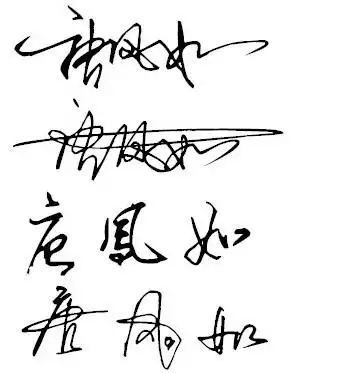 唐凤如
唐凤如
唐鳳如
唐凤如